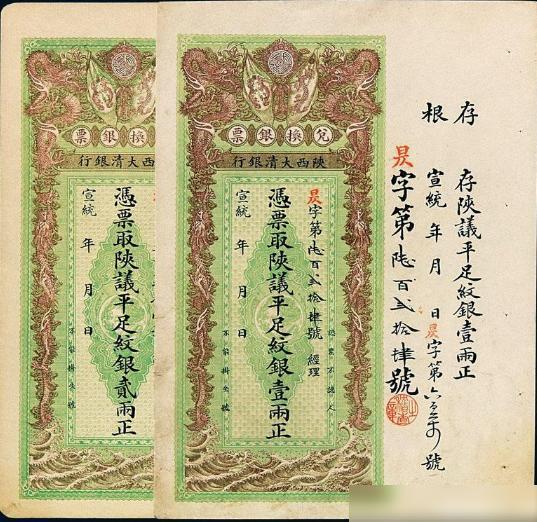 存根
存陝議平足紋銀壹兩正
宣統 年 月 日 昃字第 號
昃字第陸百弍拾肆號
兌換銀票
陝西大清銀行
昃字第陸百弍拾肆號 經理
憑票取陝議平足紋銀壹兩正
宣統 年 月 日
認票不認人
換銀票
西大清銀行
憑票取陝議平足紋銀貳兩正
宣統 年 月 日